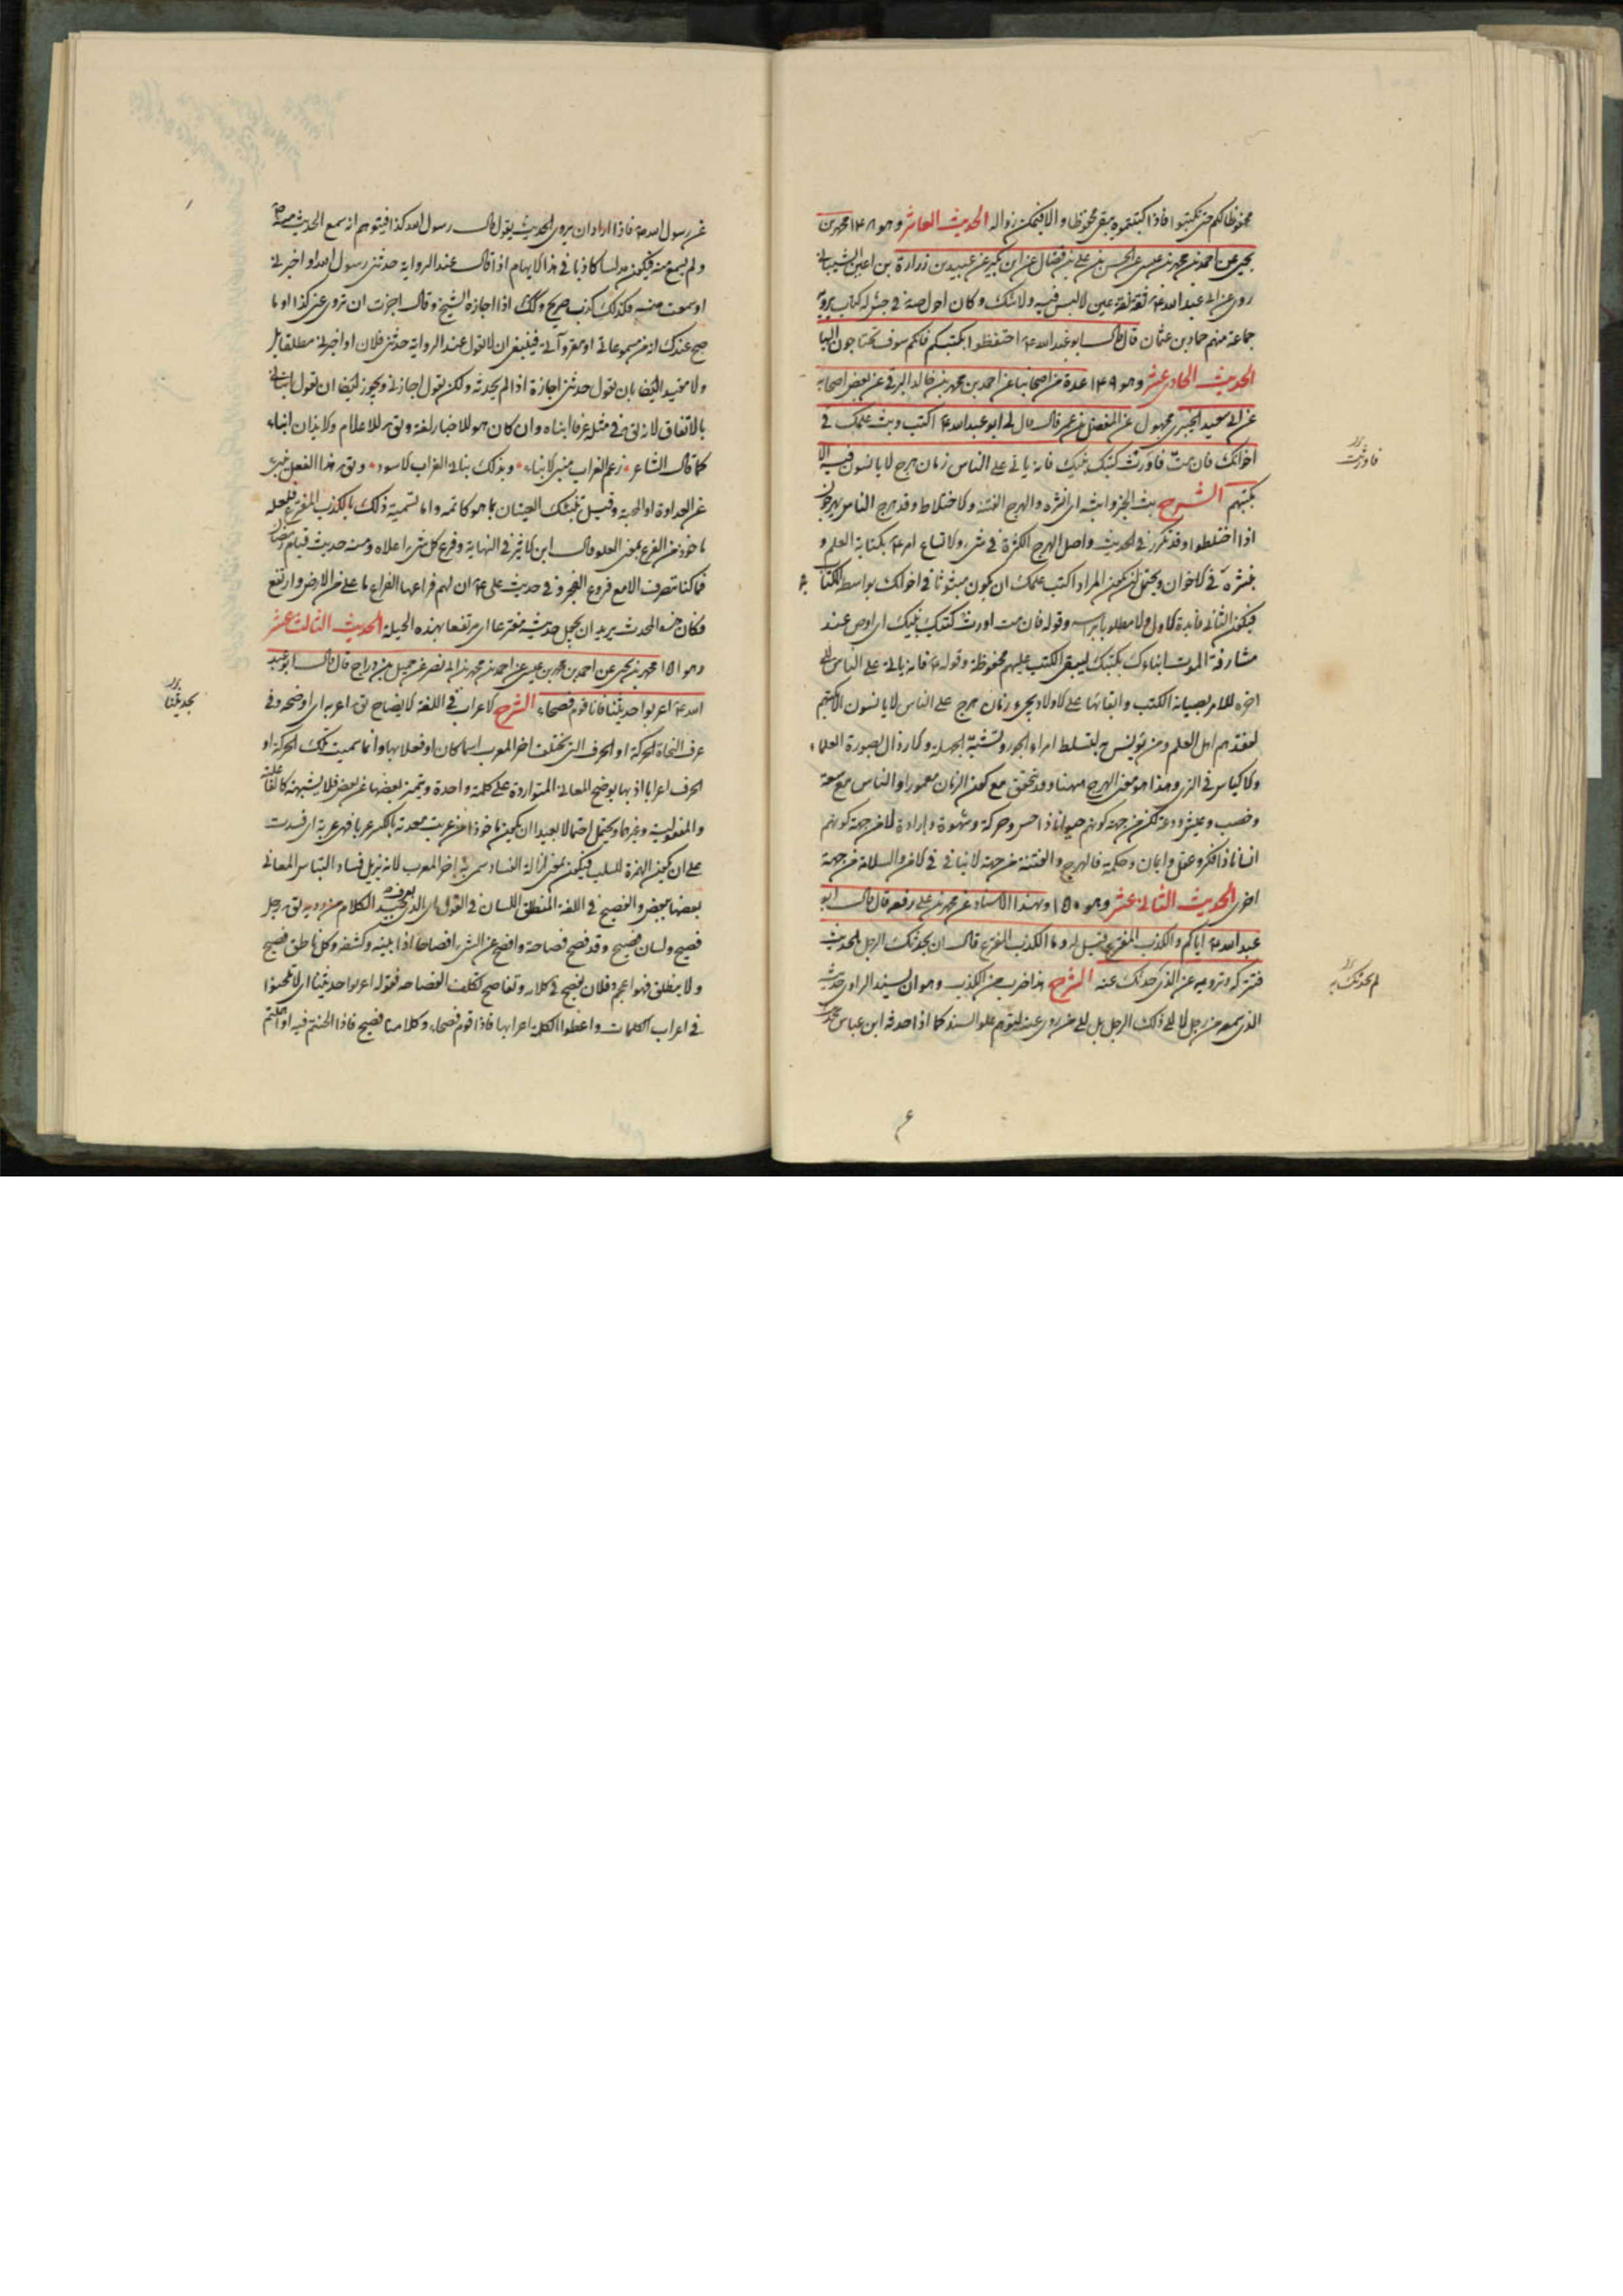 محفوظا لكم حتى تكتبوا فاذا كتبتموه يبقى محفوظا والا فيمكن زواله الحديث العاشر وهو ١٤٨ محمد بن
يحيى عن احمد بن محمد بن عيسى عن الحسن بن على بن فضال عن ابن بكير عن عبيد بن زرارة بن اعين الشيبانى
روى عن ابى عبد الله ع ثقة ثقة عين لا لبس فيه ولا شك وكان احول صه فى جش له كتاب يرويه
جماعة منهم حماد بن عثمان قال قال ابو عبد الله ع احتفظوا بكتبكم فانكم سوف تحتاجون اليها
الحديث الحادى عشر وهو ١٤٩ عدة من اصحابنا عن احمد بن محمد بن خالد البرقى عن بعض اصحابه
عن ابى سعيد الخيبرى مجهول عن المفضل بن عمر قال قال لى ابو عبد الله ع اكتب وبث علمك فى
اخوانك فان مت فاورث كتبك بنيك فانه ياتى على الناس زمان هرج لا يانسون فيه الا
بكتبهم الشرح بث الخبر وابثه اى نشره والهرج الفتنة والاختلاط وقد هرج الناس يهرجون
اذا اختلطوا وقد تكرر فى الحديث واصل الهرج الكثرة فى شىء والاتساع امر ع بكتابة العلم و
بنشره فى الاخوان ويحتمل ان يكون المراد اكتب علمك ان يكون مبثوثا فى اخوانك بواسطة الكتابة
فيكون الثانى فايدة الاول ولا مطلوبا براسه وقوله فان مت اورث كتبك بنيك اى اوص عند
مشارفة الموت ابناءك بكتبك ليبقى الكتب عليهم محفوظة وقوله ع فانه ياتى على الناس الى
اخره للامر بصيانة الكتب وابقائها على الاولاد يجىء زمان هرج على الناس لا يانسون الا بكتبهم
لفقدهم اهل العلم ومن يؤنس به لتسلط امراء الجور وتشبه الجهلة والارذال بصورة العلماء
والاكياس فى الزى وهذا هو معنى الهرج ههنا وقد يتحقق مع كون الزمان معمورا والناس مع سعة
وخصب وعيش ودعة لكن من جهة كونهم حيوانا ذا حس وحركة وشهوة وارادة لا من جهة كونهم
انسانا ذا فكر وعقل وايمان وحكمة فالهرج والفتنة من جهة لا ينافى الامن والسلامة من جهة
اخرى الحديث الثانى عشر وهو ١٥٠ وبهذا الاسناد عن محمد بن على رفعه قال قال ابو
عبد الله ع اياكم والكذب المفترع قيل له وما الكذب المفترع قال ان يحدثك الرجل بالحديث
فتتركه وترويه عن الذى حدثك عنه الشرح هذا ضرب من الكذب وهو ان يسند الراوى حديث
الذى سمعه من رجل لا الى ذلك الرجل بل الى من روى عنه ليتوهم علو السند كما اذا حدثه ابن عباس
فاورث
لم يحدثك به
عن رسول الله ص فاذا اراد ان يروى الحديث يقول قال رسول الله كذا فيتوهم انه سمع الحديث منه
ولم يسمع منه فيكون مدلسا كاذبا فى هذا الايهام اذا قال عند الرواية حدثنى رسول الله او اخبرنى
او سمعت منه فكذلك كذب صريح وكذلك اذا اجازه الشيخ وقال اجزت ان تروى عنى كذا او ما
صح عندك انه من مسموعاتى او مقرواتى فينبغى ان لا تقول عند الرواية حدثنى فلان او اخبرنى مطلقا بل
ولا مقيدا ايضا بان يقول حدثنى اجازة اذا لم يحدثه ولكن يقول اجازنى ويجوز ايضا ان تقول انبانى
بالاتفاق لانه يق فى مثله عرفا انباه وان كان هو للاخبار لغة ويق للاعلام والايذان انباء
كما قال الشاعر زعم الغراب منبئ الانباء وبذلك نبانى الغراب الاسود ويق هذا الفعل ينبئ
عن العداوة او المحبة وقيل تنبئك العينان ما هو كاتمه واما تسمية ذلك بالكذب المفترع فلعله
ماخوذ من الفرع بمعنى العلو قال ابن الاثير فى النهاية وفرع كل شىء اعلاه ومنه حديث قيام رمضان
فما كنا ننصرف الا مع فروع الفجر وفى حديث على ع ان لهم فراعها الفراع ما علا من الارض وارتفع
فكان هذا المحدث يريد ان يجعل حديثه مفترعا اى مرتفعا بهذه الحيلة الحديث الثالث عشر
وهو ١٥١ محمد بن يحيى عن احمد بن محمد بن عيسى عن احمد بن محمد بن ابى نصر عن جميل بن دراج قال قال ابو عبد
الله ع اعربوا حديثنا فانا قوم فصحاء الشرح الاعراب فى اللغة الايضاح يق اعربه اى اوضحه وفى
عرف النحاة الحركة او الحرف التى يختلف اخر المعرب اسما كان او فعلا بها وانما سميت تلك الحركة او
الحرف اعرابا اذ بها يوضح المعانى المتواردة على كلمة واحدة ويتميز بعضها عن بعض فلا يشتبه كالفاعلية
والمفعولية وغيرها ويحتمل احتمالا بعيدا ان يكون ماخوذا من عربت معدته بالكسر عربا فهى عربة اى فسدت
على ان يكون الهمزة للسلب فيكون بمعنى ازالة الفساد سمى به اخر المعرب لانه يزيل فساد التباس المعانى
بعضها ببعض والفصيح فى اللغة المنطلق اللسان فى القول اى الذى يعرف جيد الكلام من رديه يق رجل
فصيح ولسان فصيح وقد فصح فصاحة وافصح عن الشىء افصاحا اذا بينه وكشفه وكل ناطق فصيح
وما لا ينطق فهو اعجم وفلان يفصح فى كلامه وتفاصح تكلف الفصاحة فقوله اعربوا حديثنا اى لا تلحنوا
فى اعراب الكلمات واعطوا الكلمة اعرابها فانا قوم فصحاء وكلامنا فصيح فاذا لحنتم فيه او
بحديثنا